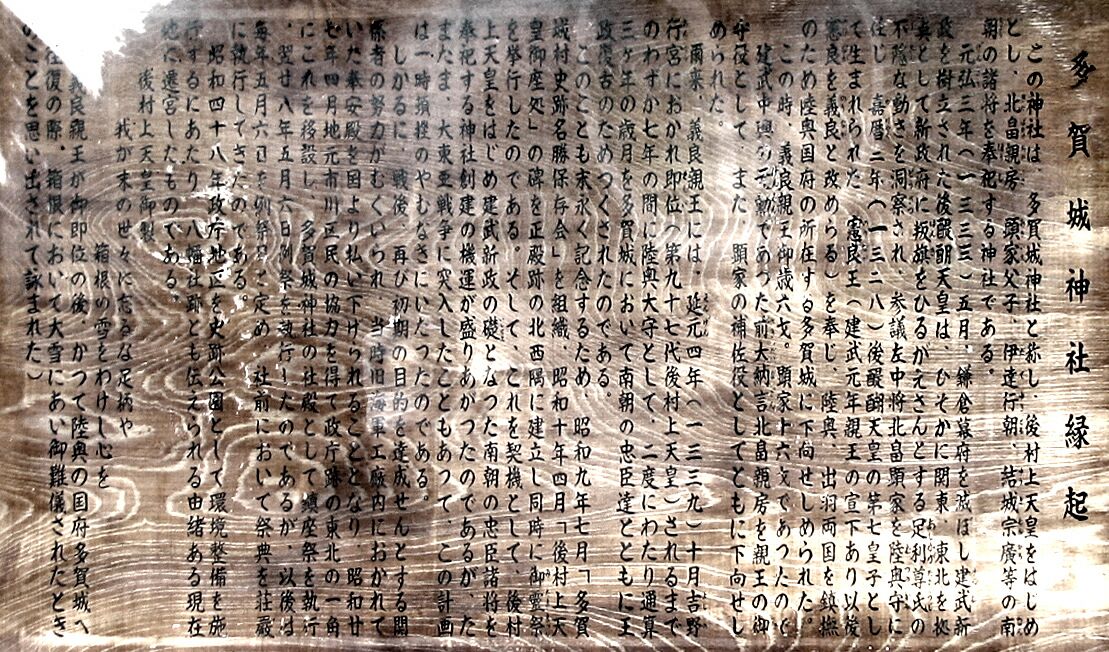 多賀城神社縁起
この神社は、多賀城神社と称し、後村上天皇をはじめ
とし、北畠親房、顕家父子、伊達行朝、結城宗廣等の南
朝の諸将を奉祀する神社である。
元弘三年(一三三三)五月、鎌倉幕府を滅ぼし建武新
政を樹立された後醍醐天皇は、ひそかに関東、東北を拠
点として新政府に叛旗をひるがえさんとする足利尊氏の
不隠な動きを洞察され、参議左中将北畠顕家を陸奥守に
任じ、嘉暦三年(一三二八)後醍醐天皇の第七皇子とし
て生まれられた、憲良王(建武元年親王の宣下あり以後
憲良を義良と改めらる)を奉じ、陸奥、出羽両国を鎮撫
のため陸奥国府の所在する多賀城に下向せしめられた。
この時、義良親王御歳六才。顕家十六才であつたので
建武中興の元勲であつた前大納言北畠親房を親王の御
守役として、また、顕家の補佐役としてともに下向せし
められた。
爾来、義良親王には、延元四年(一三三九)十月吉野
行宮におかれ即位(第九十七代後村上天皇)されるまで
のわずか七年の間に陸奥大守として、二度にわたり通算
三ヶ年の歳月を多賀城において南朝の忠臣達とともに王
政復古のためつくされたのである。
このことを末永く記念するため、昭和九年七月「多賀
城村史跡名勝保存会」を組織、昭和十年四月「後村上天
皇御座処」の碑を正殿跡の北西隅に建立し同時に御霊祭
を挙行したのである。そして、これを契機として、後村
上天皇をはじめ建武新政の礎となつた南朝の忠臣諸将を
奉祀する神社創建の機運が盛りあがつたのであるが、た
またま、大東亜戦争に突入したこともあつて、この計画
は一時頓挫のやむなきにいたつたのである。
しかるに、戦後、再び初期の目的を達成せんとする関
係者の努力がむくいられ、当時旧海軍工廠内におかれて
いた奉安殿を国より払い下げられることとなり、昭和廿
七年四月地元市川区民の協力を得て政庁跡の東北の一角
にこれを移設し、多賀城神社の社殿として鎮座祭を執行
翌廿八年五月六日例祭を執行したのであるが、以後は
毎年五月六日を例祭日と定め、社前において祭典を荘厳
に執行してきたのである。
昭和四十八年政庁地区を史跡公園として環境整備を施
行するにあたり、八幡社跡とも伝えられる由緒ある現在
地に遷宮したものである。
後村上天皇御製
我が末の世々に忘るな足柄や
箱根の雪をわけし心を
義良親王が御即位の後、かつて陸奥の国府多賀城へ
往復の際、箱根において大雪にあい御難儀されたとき
のことを思い出されて詠まれた)